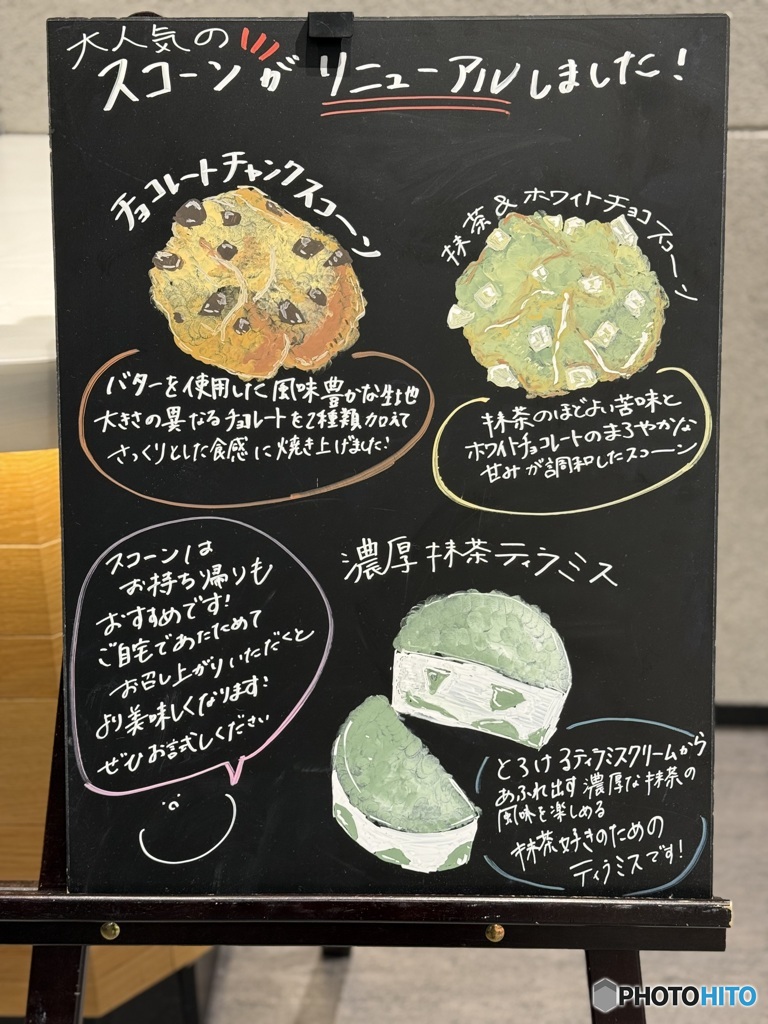 大人気の
スコーンがリニューアルしました!
チョコレートチャンクスコーン
抹茶&ホワイトチョコスコーン
バターを使用した風味豊かな生地
大きさの異なるチョコレートを2種類加えて
さっくりとした食感に焼き上げました!
抹茶のほどよい苦味と
ホワイトチョコレートのまろやかな
甘みが調和したスコーン
スコーンは
お持ち帰りも
おすすめです!
ご自宅であたためて
お召し上がりいただくと
より美味しくなります!
ぜひお試しください
濃厚抹茶ティラミス
とろけるティラミスクリームから
あふれ出す濃厚な抹茶の
風味を楽しめる
抹茶好きのための
ティラミスです!
PHOTOHITO